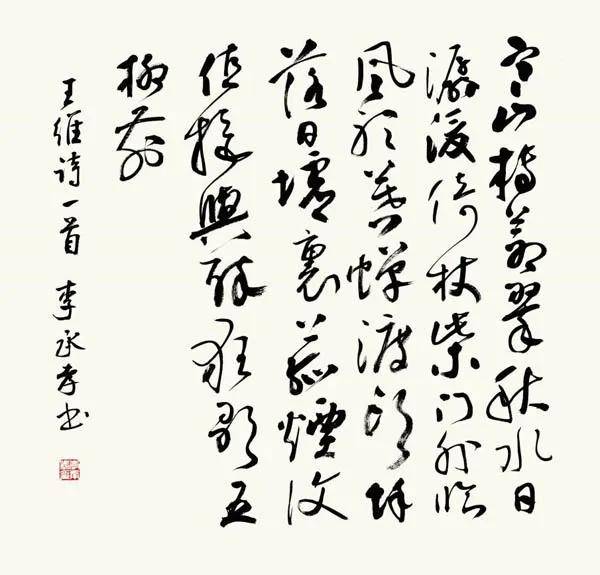 寒山轉蒼翠秋水日
潺湲倚杖柴门外临
風听暮蝉渡头馀
落日墟裏上孤煙復
值接輿醉狂歌五
柳前
王维诗一首 李承孝书